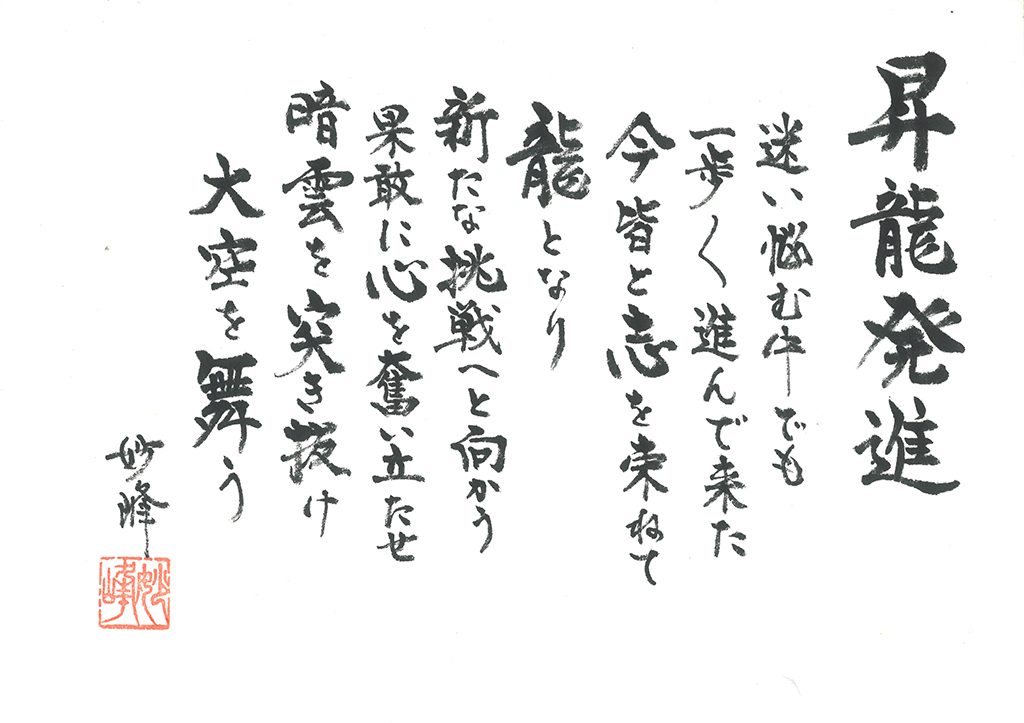 昇龍発進
迷い悩む中でも
一歩〱進んで来た
今皆と志を束ねて
龍となり
新たな挑戦へと向かう
果敢に心を奮い立たせ
暗雲を突き抜け
大空を舞う
妙峰
妙峰